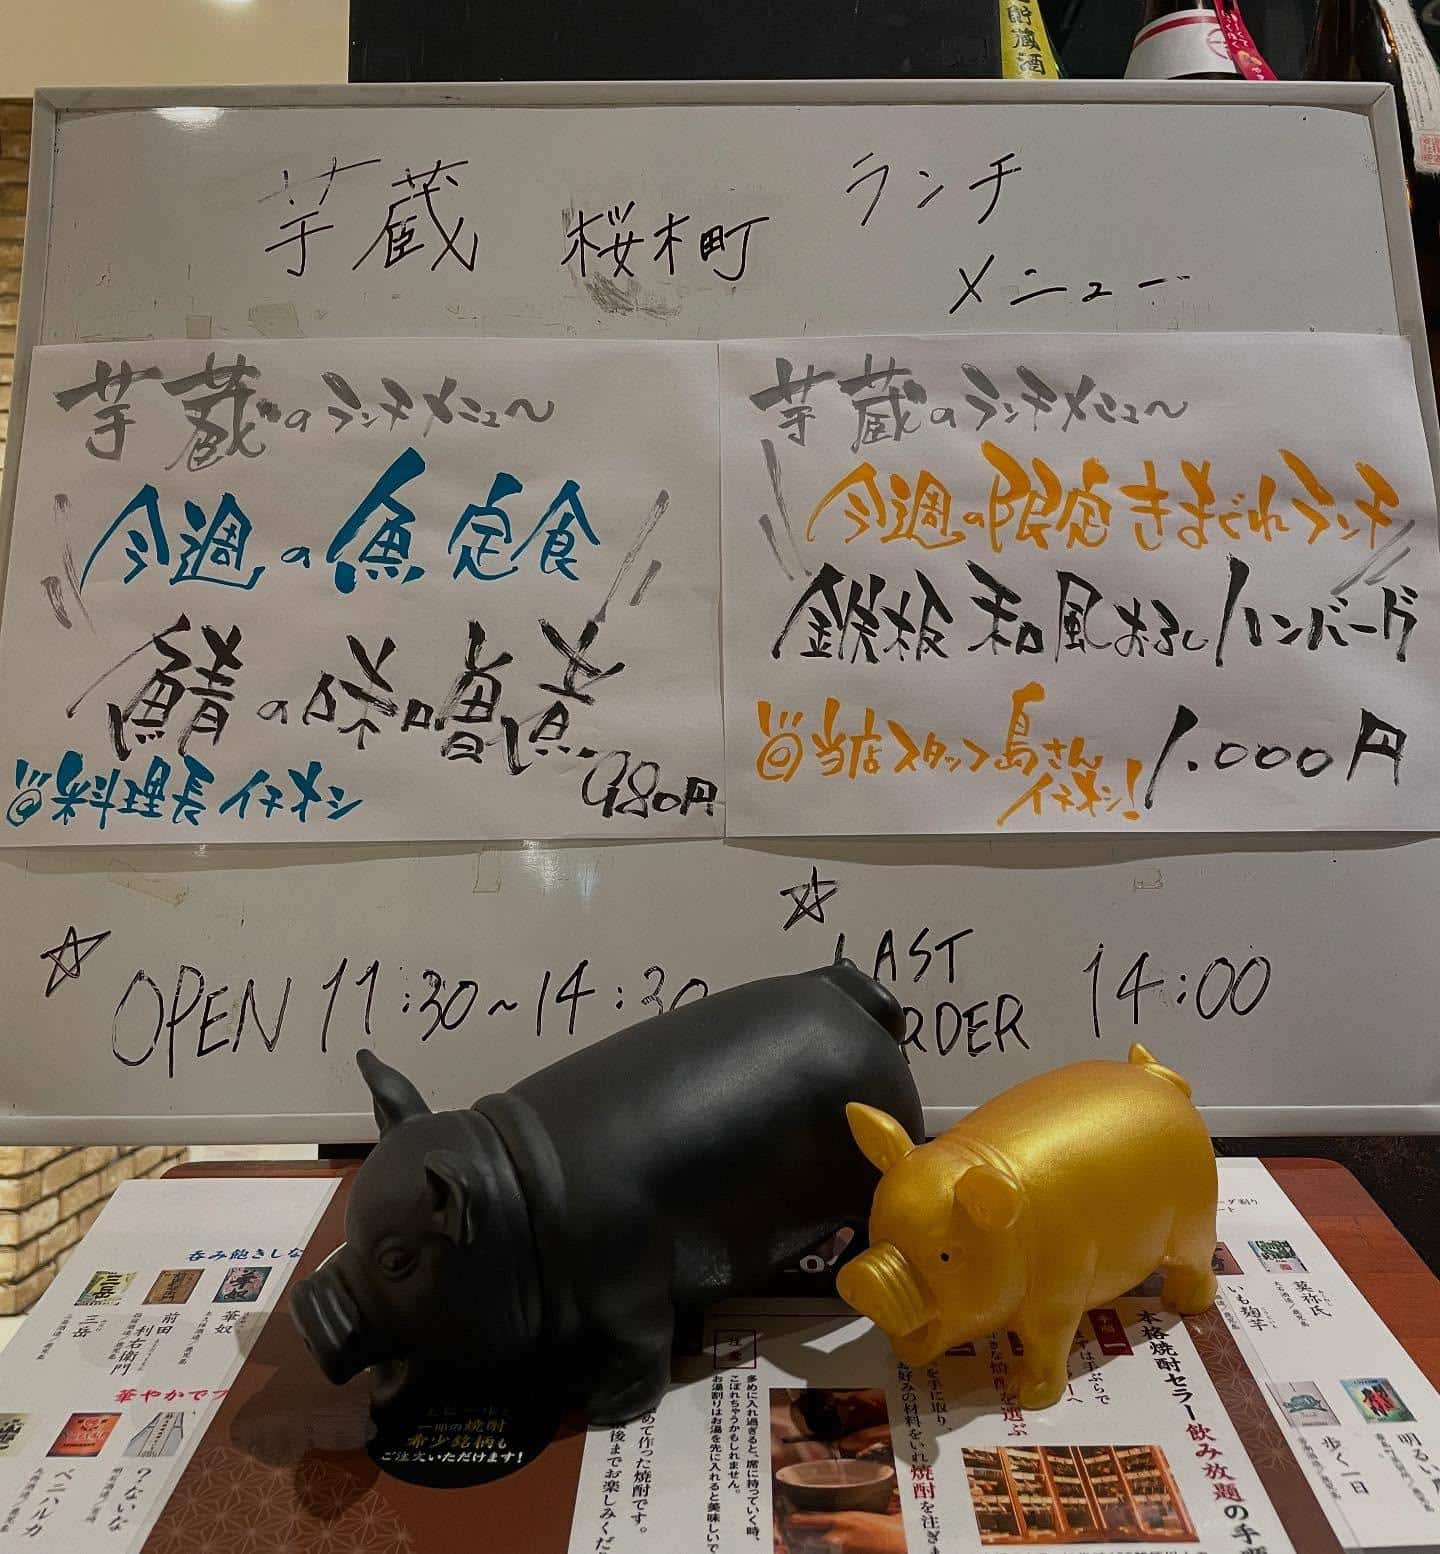 貯蔵酒
芋蔵 桜木町 ランチ
メニュー
芋蔵のランチメニュ〜
今週の魚定食
鯖の味噌煮
料理長イチオシ
980円
芋蔵のランチメニュ〜
今週の限定きまぐれランチ
鉄板和風おろしハンバーグ
当店スタッフ島さん
イチオシ!
1.000円
☆ OPEN 11:30~14:30
☆ LAST
ORDER 14:00
呑み飽きしな
三岳
前田利右衛門
華奴
華やかでフ
ベニハルカ
?ないな
希少銘柄も
ご注文いただけます!
注意
多めに入れ過ぎると、席に持っていく時、
こぼれちゃうかもしれません。
お湯割りはお湯を先に入れると美味しいで
めて作った焼酎です。
最後までお楽しみくだ
本格焼酎セラー飲み放題の手
ずは手ぶらで
きな焼酎を選ぶ
を手に取り、
お好みの材料をいれ焼酎を注ぎま
いも麹芋
莫祢氏
歩く一日
明るい